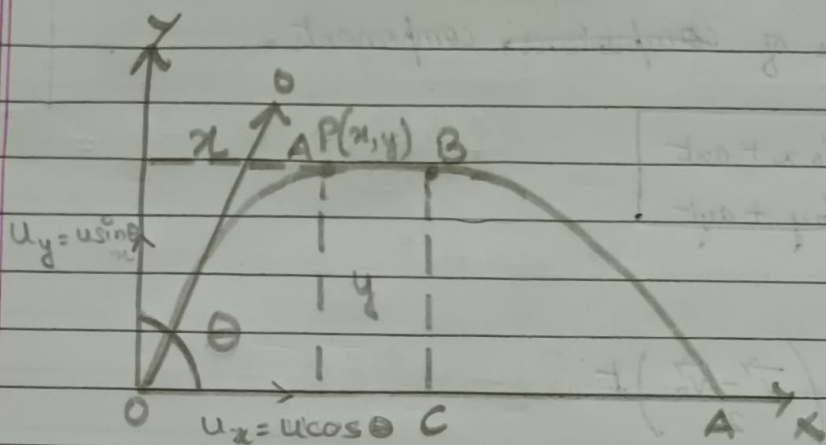 Y
υ
x A P(x,y) B
u_y = u sinθ
y
θ
O u_x = u cos θ C A X